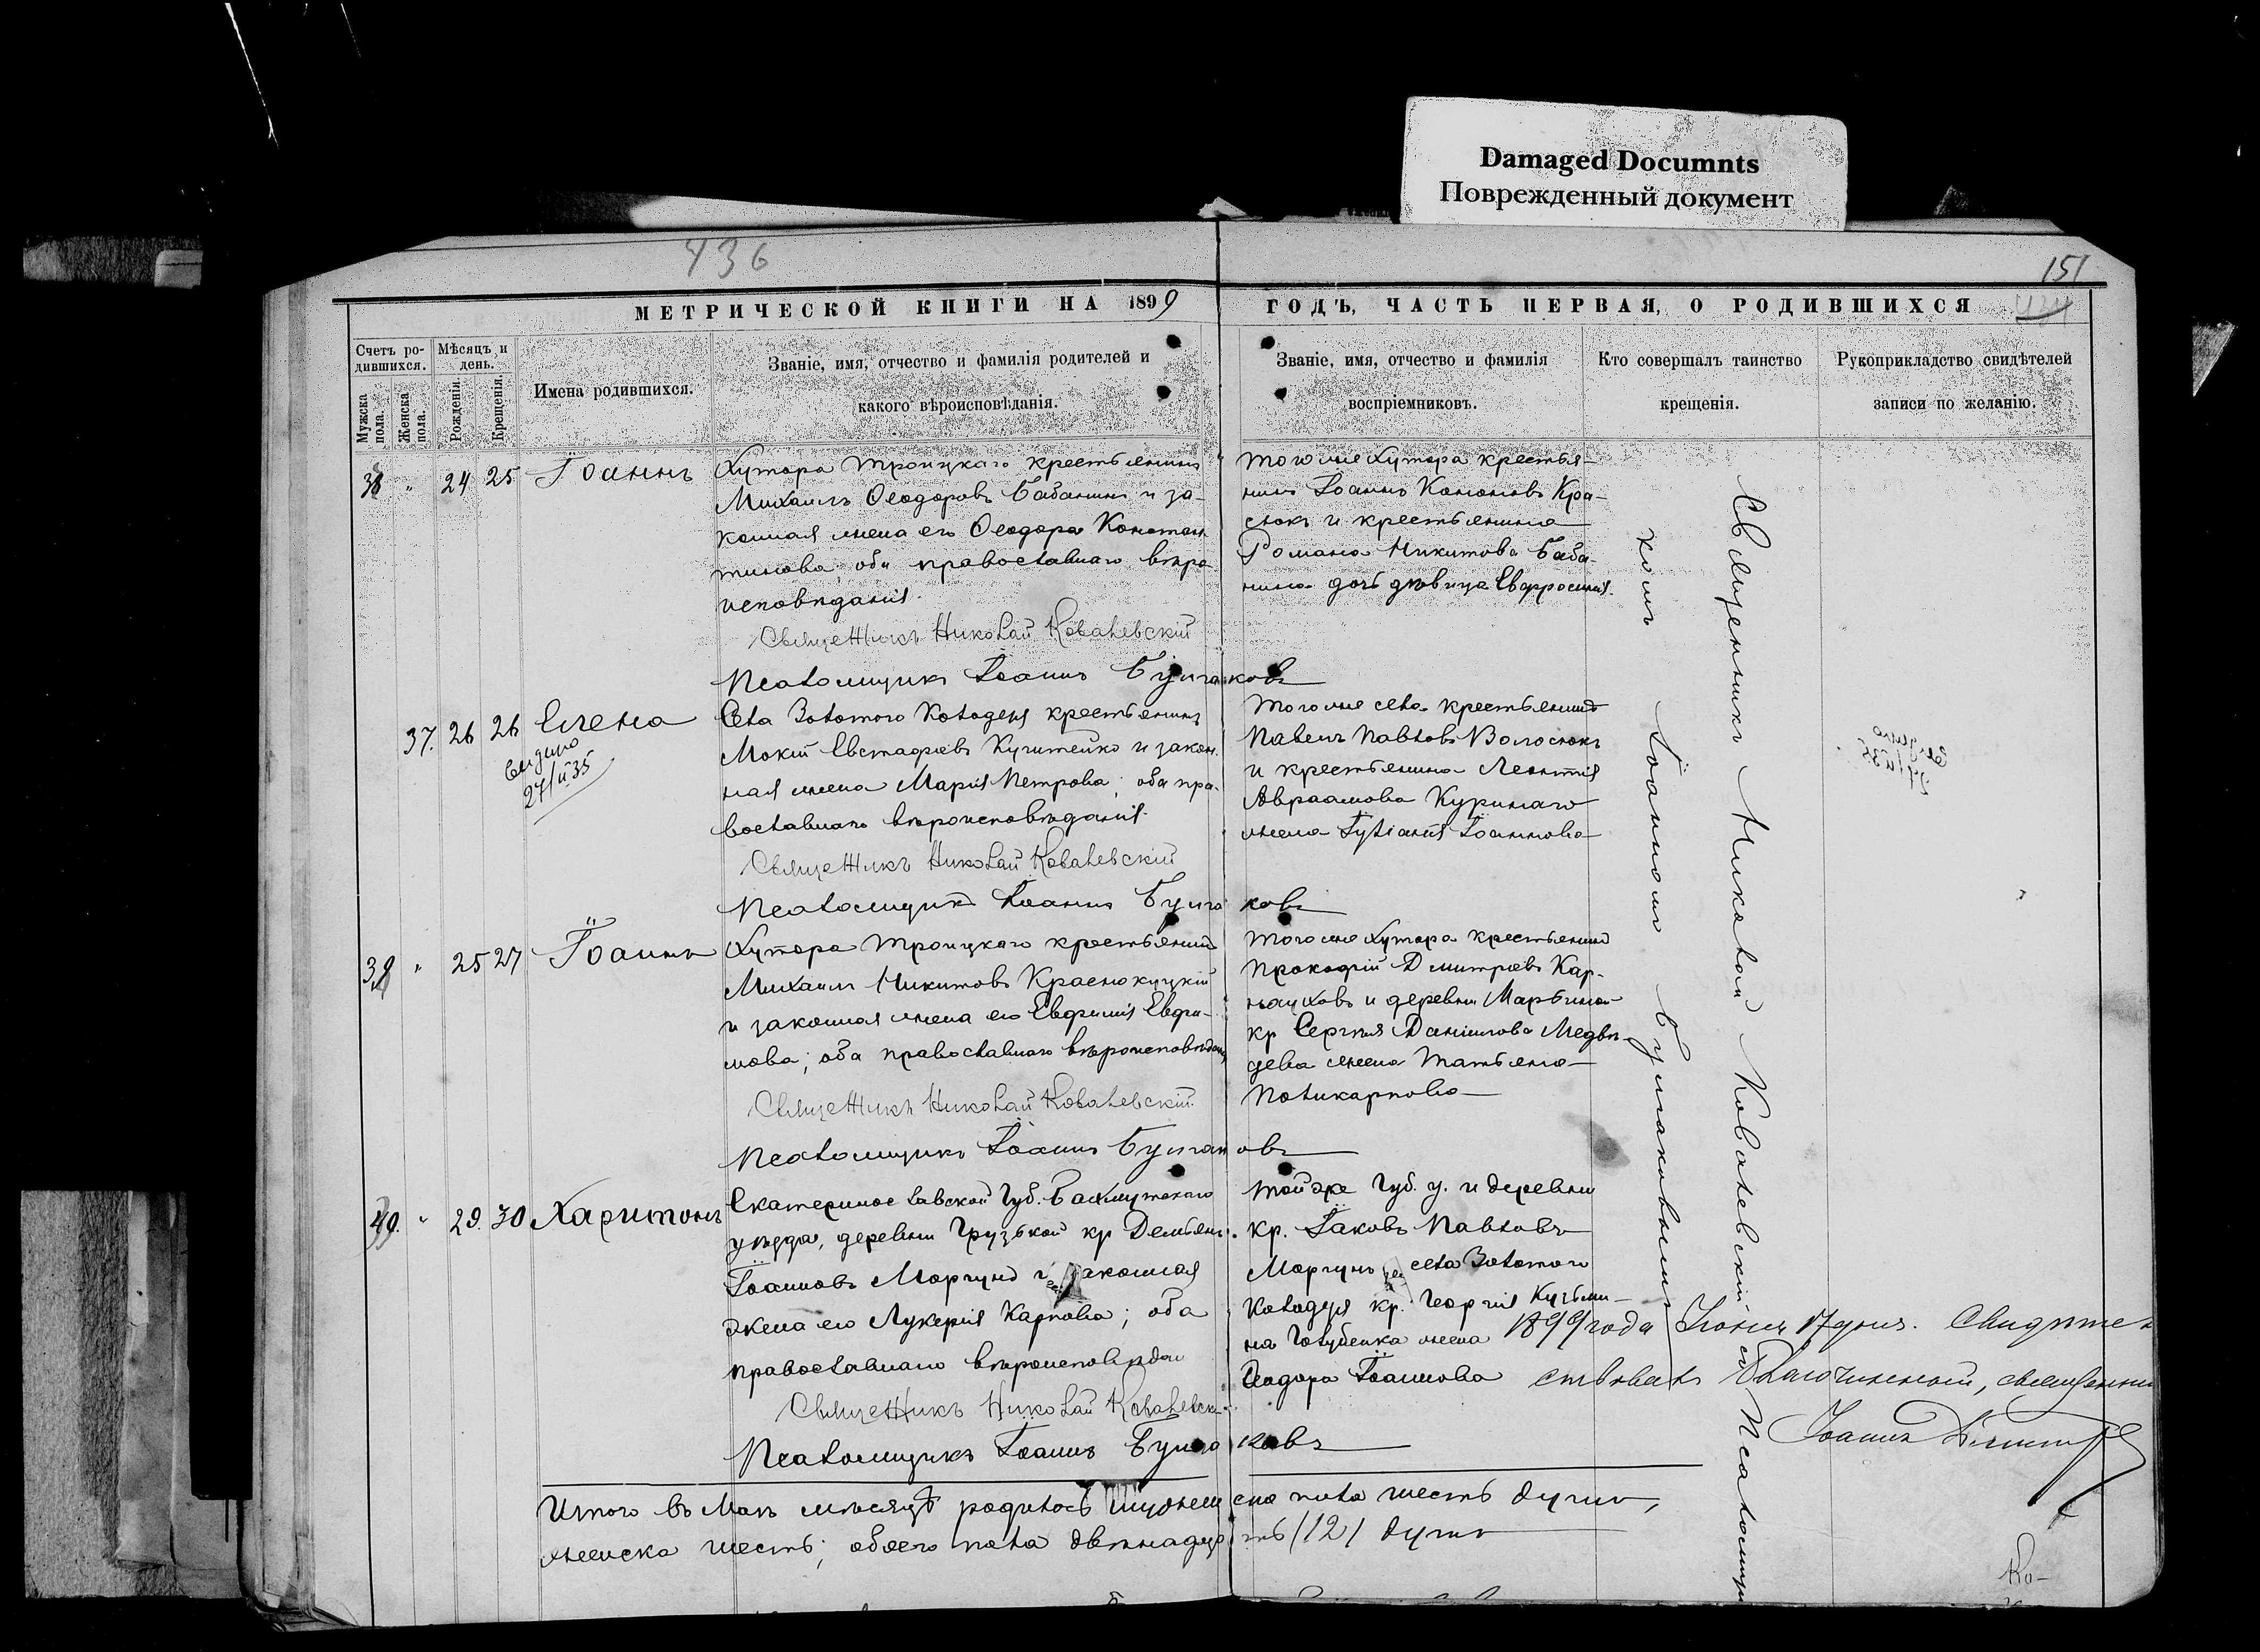 Damaged Documnts
Поврежденный документ
436
151
МЕТРИЧЕСКОЙ КНИГИ НА 1899
ГОДЪ, ЧАСТЬ ПЕРВАЯ, О РОДИВШИХСЯ
Счетъ ро-
дившихся.
Мужска
пола.
Женска
пола.
Мѣсяцъ и
день.
Рожденія.
Крещенія.
Имена родившихся.
Званіе, имя, отчество и фамилія родителей и
какого вѣроисповѣданія.
Званіе, имя, отчество и фамилія
воспріемниковъ.
Кто совершалъ таинство
крещенія.
Рукоприкладство свидѣтелей
записи по желанію.
" 24 25 Іоаннъ
Хутора Троицкаго крестьянинъ
Михаилъ Ѳеодоровъ Бабанинъ и за-
конная жена его Ѳеодора Констан
тинова; оба православнаго вѣро
исповѣданія.
Священникъ Николай Ковалевскій
Псаломщикъ Іоаннъ Булгаковъ
того же хутора крестья-
нинъ Іоаннъ Кононовъ Кра-
снокъ и крестьянина
Романа Никитова Баба-
нина дочь дѣвица Евфросинія.
37. 26 26 Елена
Видано
27/II 35
Села Золотого Колодезя крестьянинъ
Мокій Евстафіевъ Кучитенко и закон.
ная жена Марія Петрова; оба пра-
вославнаго вѣроисповѣданія.
Священникъ Николай Ковалевскій
Псаломщикъ Іоаннъ Булгаковъ
Того же села крестьянинъ
Павелъ Павловъ Волоснокъ
и крестьянина Леонтія
Авраамова Куринаго
жена Іуліанія Іоаннова
38 " 25 27 Іоаннъ
Хутора Троицкаго крестьянинъ
Михаилъ Никитовъ Краснокуцкій
и законная жена его Евфимія Евфи-
мова; оба православнаго вѣроисповѣдан
Священникъ Николай Ковалевскій
Псаломщикъ Іоаннъ Булгаковъ
того же хутора крестьянинъ
Прокофій Дмитріевъ Кар-
научовъ и деревни Марьиной
кр Сергѣя Даніилова Медвѣ-
дева жена Татьяна
Поликарпова
" 29. 30 Харитонъ
Екатеринославской Губ. Бахмутскаго
уѣзда, деревни Грузской кр Демьянъ
Іоанновъ Моргунъ и законная
жена его Лукерія Карпова; оба
православнаго вѣроисповѣдан
Священникъ Николай Ковалевскі
Псаломщикъ Іоаннъ Булгаковъ
той же Губ. у. и деревни
кр. Іаковъ Павловъ
Моргунъ села Золотого
Колодезя кр. Георгія Кузьми-
на Голубенка жена
Ѳеодора Іоаннова
Священникъ Николай Ковалевскій съ Псаломщи
комъ Іоанномъ Булгаковымъ
Видано
27/II 35
1899 года Іюня 17 дня. Свидѣтел
ствовалъ Благочинный, священни
Іоаннъ
Итого въ Маѣ мѣсяцѣ родилось мужеска пола шесть душъ,
женска шесть; обоего пола двѣнадцать /12/ душъ
Ко-